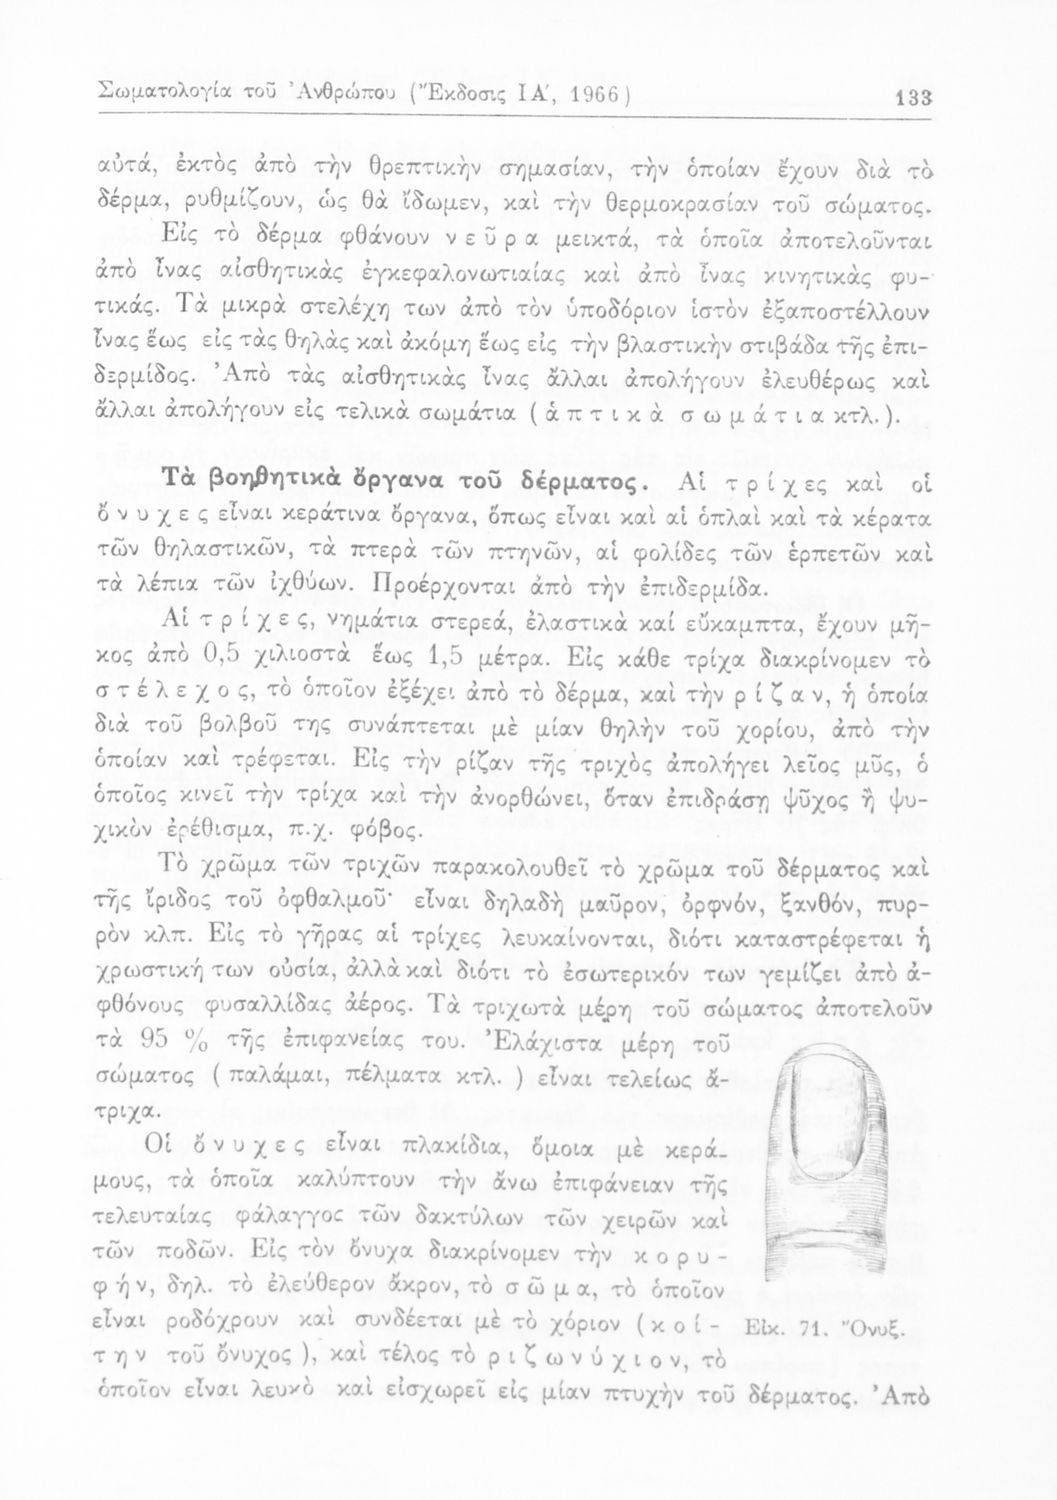 Σωματολογία τοῦ Ἀνθρώπου (Ἔκδοσις ΙΑ΄, 1966) 133
αὐτά, ἐκτὸς ἀπὸ τὴν θρεπτικὴν σημασίαν, τὴν ὁποίαν ἔχουν διὰ τὸ
δέρμα, ρυθμίζουν, ὡς θὰ ἴδωμεν, καὶ τὴν θερμοκρασίαν τοῦ σώματος.
Εἰς τὸ δέρμα φθάνουν ν ε ῦ ρ α μεικτά, τὰ ὁποῖα ἀποτελοῦνται
ἀπὸ ἶνας αἰσθητικὰς ἐγκεφαλονωτιαίας καὶ ἀπὸ ἶνας κινητικὰς φυ-
τικάς. Τὰ μικρὰ στελέχη των ἀπὸ τὸν ὑποδόριον ἱστὸν ἐξαποστέλλουν
ἶνας ἕως εἰς τὰς θηλὰς καὶ ἀκόμη ἕως εἰς τὴν βλαστικὴν στιβάδα τῆς ἐπι-
δερμίδος. Ἀπὸ τὰς αἰσθητικὰς ἶνας ἄλλαι ἀπολήγουν ἐλευθέρως καὶ
ἄλλαι ἀπολήγουν εἰς τελικὰ σωμάτια ( ἁ π τ ι κ ὰ σ ω μ ά τ ι α κτλ. ).
Τὰ βοηθητικὰ ὄργανα τοῦ δέρματος. Αἱ τ ρ ί χ ες καὶ οἱ
ὄ ν υ χ ε ς εἶναι κεράτινα ὄργανα, ὅπως εἶναι καὶ αἱ ὁπλαὶ καὶ τὰ κέρατα
τῶν θηλαστικῶν, τὰ πτερὰ τῶν πτηνῶν, αἱ φολίδες τῶν ἑρπετῶν καὶ
τὰ λέπια τῶν ἰχθύων. Προέρχονται ἀπὸ τὴν ἐπιδερμίδα.
Αἱ τ ρ ί χ ε ς, νημάτια στερεά, ἐλαστικὰ καί εὔκαμπτα, ἔχουν μῆ-
κος ἀπὸ 0,5 χιλιοστὰ ἕως 1,5 μέτρα. Εἰς κάθε τρίχα διακρίνομεν τὸ
σ τ έ λ ε χ ο ς, τὸ ὁποῖον ἐξέχει ἀπὸ τὸ δέρμα, καὶ τὴν ρ ί ζ α ν, ἡ ὁποία
διὰ τοῦ βολβοῦ της συνάπτεται μὲ μίαν θηλὴν τοῦ χορίου, ἀπὸ τὴν
ὁποίαν καὶ τρέφεται. Εἰς τὴν ρίζαν τῆς τριχὸς ἀπολήγει λεῖος μῦς, ὁ
ὁποῖος κινεῖ τὴν τρίχα καὶ τὴν ἀνορθώνει, ὅταν ἐπιδράσῃ ψῦχος ἢ ψυ-
χικὸν ἐρέθισμα, π.χ. φόβος.
Τὸ χρῶμα τῶν τριχῶν παρακολουθεῖ τὸ χρῶμα τοῦ δέρματος καὶ
τῆς ἴριδος τοῦ ὀφθαλμοῦ· εἶναι δηλαδὴ μαῦρον, ὀρφνόν, ξανθόν, πυρ-
ρὸν κλπ. Εἰς τὸ γῆρας αἱ τρίχες λευκαίνονται, διότι καταστρέφεται ἡ
χρωστική των οὐσία, ἀλλὰ καὶ διότι τὸ ἐσωτερικόν των γεμίζει ἀπὸ ἀ-
φθόνους φυσαλλίδας ἀέρος. Τὰ τριχωτὰ μέρη τοῦ σώματος ἀποτελοῦν
τὰ 95 % τῆς ἐπιφανείας του. Ἐλάχιστα μέρη τοῦ
σώματος ( παλάμαι, πέλματα κτλ. ) εἶναι τελείως ἄ-
τριχα.
Οἱ ὄ ν υ χ ε ς εἶναι πλακίδια, ὅμοια μὲ κερά-
μους, τὰ ὁποῖα καλύπτουν τὴν ἄνω ἐπιφάνειαν τῆς
τελευταίας φάλαγγος τῶν δακτύλων τῶν χειρῶν καὶ
τῶν ποδῶν. Εἰς τὸν ὄνυχα διακρίνομεν τὴν κ ο ρ υ -
φ ή ν, δηλ. τὸ ἐλεύθερον ἄκρον, τὸ σ ῶ μ α, τὸ ὁποῖον
εἶναι ροδόχρουν καὶ συνδέεται μὲ τὸ χόριον ( κ ο ί -
τ η ν τοῦ ὄνυχος ), καὶ τέλος τὸ ρ ι ζ ω ν ύ χ ι ο ν, τὸ
ὁποῖον εἶναι λευκὸ καὶ εἰσχωρεῖ εἰς μίαν πτυχὴν τοῦ δέρματος. Ἀπὸ
Εἰκ. 71. Ὄνυξ.